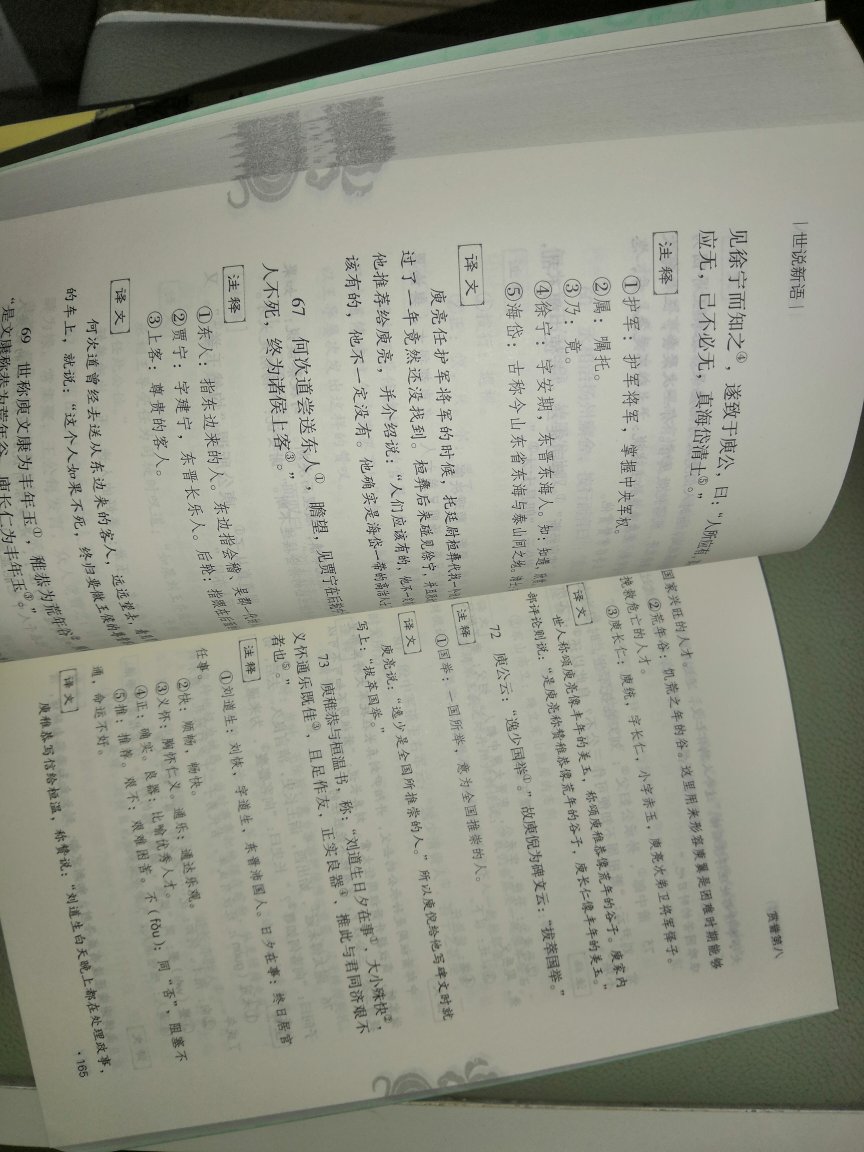 世说新语
见徐宁而知之④，遂致于庾公，曰：“人所应有，
应无，己不必无，真海岱清士⑤。”
注释
①护军：护军将军，掌握中央军权。
②属：嘱托。
③乃：竟。
④徐宁：字安期，东晋东海人。知：知遇，
⑤海岱：古称今山东省东海与泰山间之地。
译文
庾亮任护军将军的时候，托廷尉桓彝代找一
过了一年竟然还没找到。桓彝后来碰见徐宁，
他推荐给庾亮，并介绍说：“人们应该有的，他不一
该有的，他不一定没有。他确实是海岱一带的
67 何次道尝送东人①，瞻望，见贾宁在后
人不死，终为诸侯上客③。”
注释
①东人：指东边来的人。东边指会稽、吴郡
②贾宁：字建宁，东晋长乐人。后轮：
③上客：尊贵的客人。
译文
何次道曾经去送从东边来的客人，远远望去，
的车上，就说：“这个人如果不死，终归要做王侯的
69 世称庾文康为丰年玉①，稚恭为荒年谷
“是文康称恭为荒年谷，庾长仁为丰年玉③。”
赏誉第八
国家兴旺的人才。
②荒年谷：饥荒之年的谷。这里用来形容庾翼是困难时期能够
挽救危亡的人才。
③庾长仁：庾统，字长仁，小字赤玉，庾亮次弟卫将军怿子。
译文
世人称颂庾亮像丰年的美玉，称颂庾稚恭像荒年的谷子。庾家内
部评论则说：“是庾亮称赞稚恭像荒年的谷子，庾长仁像丰年的美玉。”
72 庾公云：“逸少国举①。”故庾倪为碑文云：“拔萃国举。”
注释
①国举：一国所举，意为全国推崇的人。
译文
庾亮说：“逸少是全国所推崇的人。”所以庾倪给他写碑文时就
写上：“拔萃国举。”
73 庾稚恭与桓温书，称：“刘道生日夕在事①，大小殊快②，
义怀通乐既佳③，且足作友，正实良器④，推此与君同济艰不
者也⑤。”
注释
①刘道生：刘恢，字道生，东晋沛国人。日夕在事：终日居官
任事。
②快：顺畅，畅快。
③义怀：胸怀仁义。通乐：通达乐观。
④正：确实。良器：比喻优秀人才。
⑤推：推荐。艰不：艰难困苦。不（fǒu）：同“否”，阻塞不
通，命运不好。
译文
庾稚恭写信给桓温，称赞说：“刘道生白天晚上都在处理政事，
·165